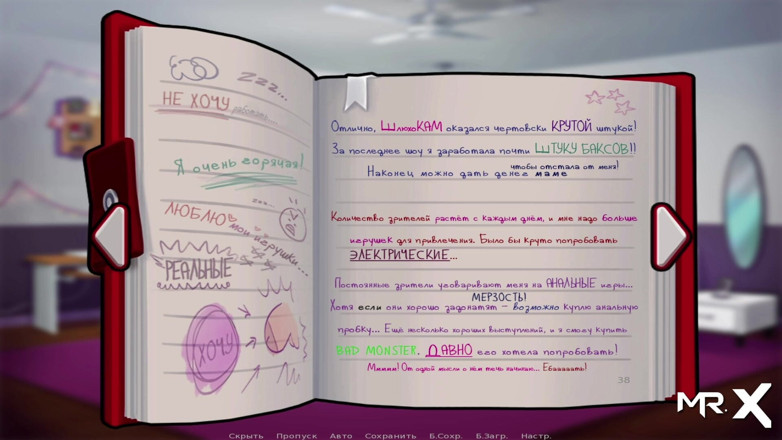 zzz...
НЕ ХОЧУ работать...
Я очень горячая!
ЛЮБЛЮ мои игрушки...
РЕАЛЬНЫЕ
ХОЧУ
Отлично, ШлюхоКАМ оказался чертовски КРУТОЙ штукой!
За последнее шоу я заработала почти ШТУКУ БАКСОВ!!
чтобы отстала от меня!
Наконец можно дать денег маме
Количество зрителей растёт с каждым днём, и мне надо больше
игрушек для привлечения. Было бы круто попробовать
ЭЛЕКТРИЧЕСКИЕ...
Постоянные зрители уговаривают меня на АНАЛЬНЫЕ игры...
МЕРЗОСТЬ!
Хотя если они хорошо задонатят - возможно куплю анальную
пробку... Ещё несколько хороших выступлений, и я смогу купить
BAD MONSTER. ДАВНО его хотела попробовать!
Ммммм! От одной мысли о нём течь начинаю... Ебааааать!
38
MR. X
Скрыть Пропуск Авто Сохранить Б.Сохр. Б.Загр. Настр.